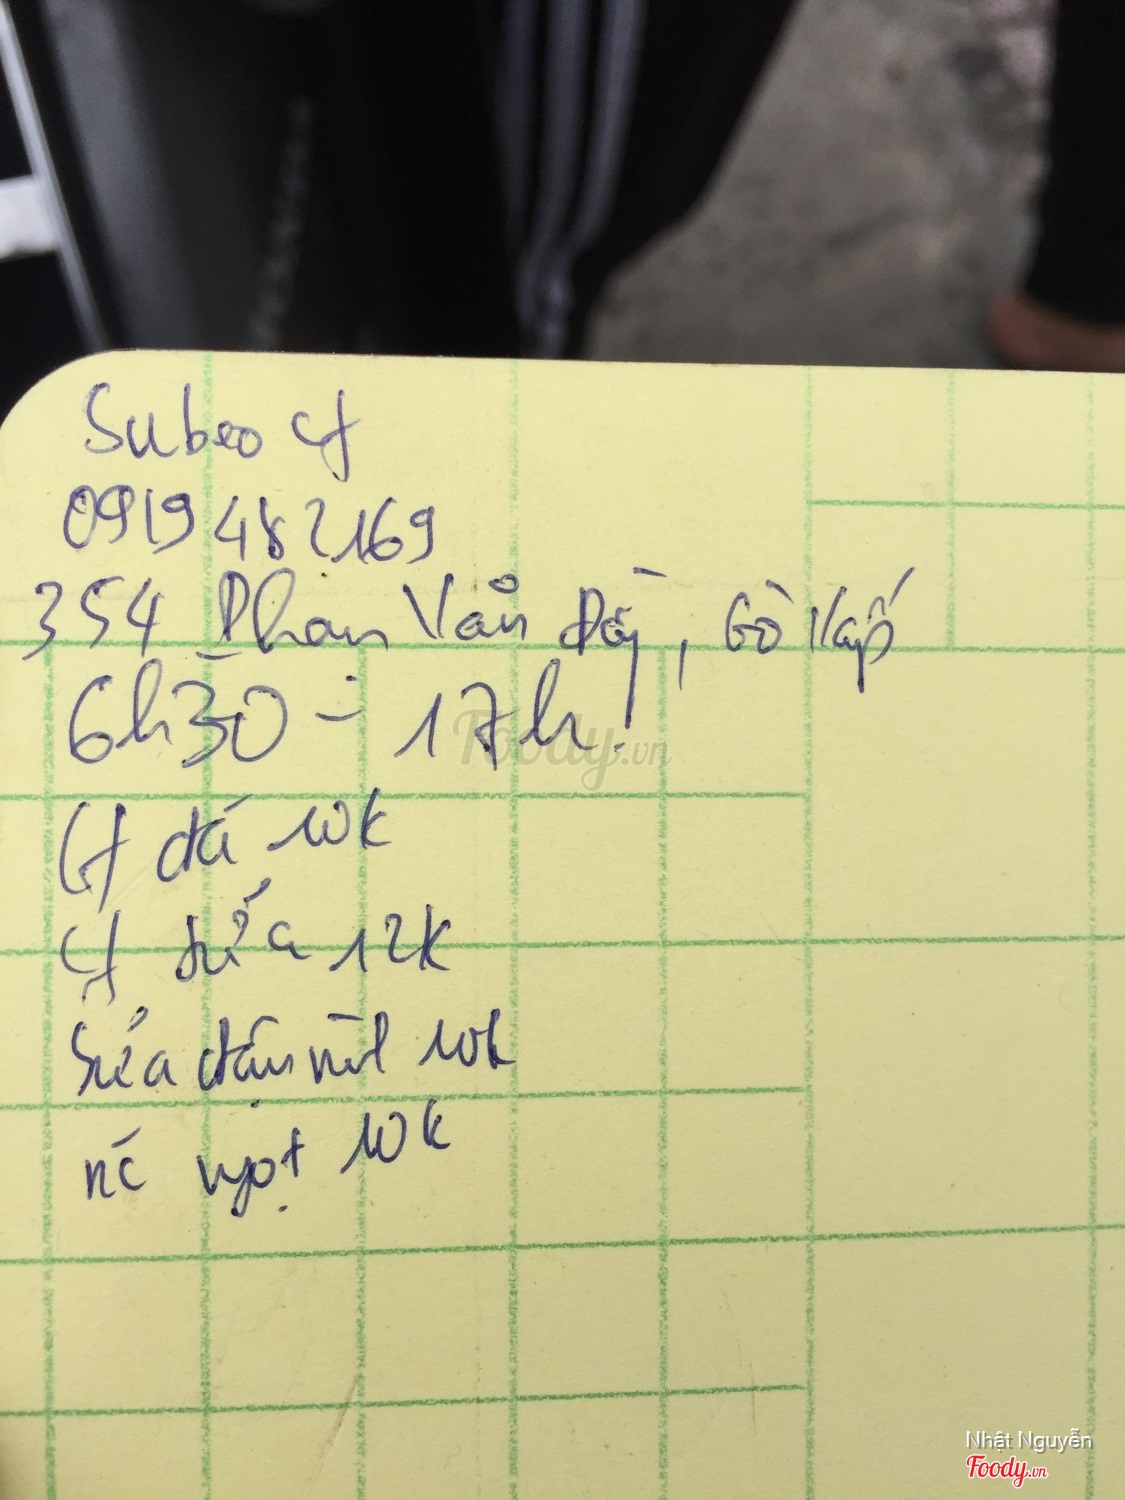 Subeo cf
0919482169
354 Phan Văn Bảy, Gò Vấp
6h30 - 17h
Cf đá 10k
Cf sữa 12k
Sữa đậu nành 10k
nc ngọt 10k
Foody.vn
Nhật Nguyễn
Foody.vn